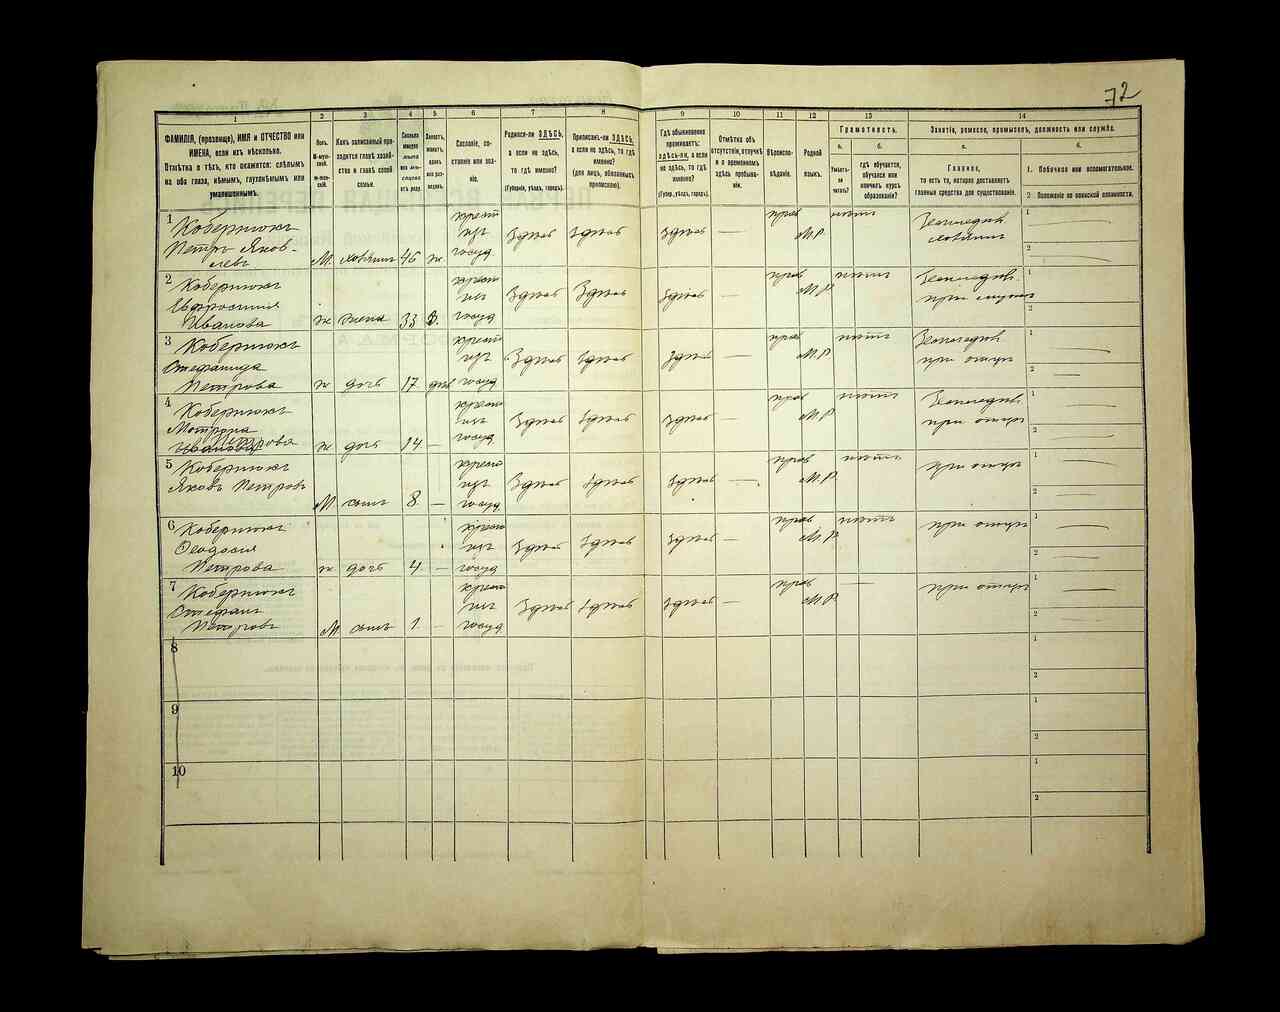 72
1 2 3 4 5 6 7 8 9 10 11 12 13 14
ФАМИЛІЯ, (прозвище), ИМЯ и ОТЧЕСТВО или
ИМЕНА, если ихъ нѣсколько.
Отмѣтка о тѣхъ, кто окажется: слѣпымъ
на оба глаза, нѣмымъ, глухонѣмымъ или
умалишеннымъ.
Полъ.
М-мужской.
Ж-женскій.
Какъ записанный приходится главѣ хозяйства и главѣ своей семьи.
Сколько минуло лѣтъ или мѣсяцевъ отъ роду.
Холостъ, женатъ, вдовъ или разведенъ.
Сословіе, состояніе или званіе.
Родился-ли ЗДѢСЬ,
а если не здѣсь,
то гдѣ именно?
(Губернія, уѣздъ, городъ).
Приписанъ-ли ЗДѢСЬ,
а если не здѣсь, то гдѣ
именно?
(для лицъ, обязанныхъ
припискою).
Гдѣ обыкновенно
проживаетъ:
здѣсь-ли, а если
не здѣсь, то гдѣ
именно?
(Губер., уѣздъ, городъ).
Отмѣтка объ
отсутствіи, отлучкѣ
и о временномъ
здѣсь пребываніи.
Вѣроисповѣданіе.
Родной
языкъ.
Грамотность.
а. б.
Умѣетъ-ли
читать?
гдѣ обучается,
обучался или
кончилъ курсъ
образованія?
Занятіе, ремесло, промыселъ, должность или служба.
а. б.
Главное,
то есть то, которое доставляетъ
главныя средства для существованія.
1. Побочное или вспомогательное.
2 Положеніе по воинской повинности.
1 Кобернюкъ
Петръ Яков-
левъ М. хозяинъ 46 ж. крест изъ госуд. Здѣсь Здѣсь Здѣсь — прав М.Р. нѣтъ Земледѣл. хозяинъ
1
2
2 Кобернюкъ
Ефросинія
Иванова ж жена 33 З. крест изъ госуд Здѣсь Здѣсь Здѣсь — прав М.Р нѣтъ Земледѣл. при
1
2
3 Кобернюкъ
Стефанида
Петрова ж дочь 17 дѣв крест изъ госуд Здѣсь Здѣсь Здѣсь — прав М.Р нѣтъ Земледѣл. при отцѣ
1
2
4 Кобернюкъ
Мотрона
Петрова
Иванова ж дочь 14 — крест изъ госуд. Здѣсь Здѣсь Здѣсь — прав М.Р нѣтъ Земледѣл. при отцѣ
1
2
5 Кобернюкъ
Яковъ Петровъ
М. сынъ 8 — крест изъ госуд. Здѣсь Здѣсь Здѣсь — прав М.Р. нѣтъ при отцѣ
1
2
6 Кобернюкъ
Феодосія
Петрова ж дочь 4. — крест изъ госуд Здѣсь Здѣсь Здѣсь — прав М.Р. нѣтъ при отцѣ
1
2
7 Кобернюкъ
Стефанъ
Петровъ М. сынъ 1. — крест изъ госуд. Здѣсь Здѣсь Здѣсь — прав М.Р. — при отцѣ
1
2
8
1
2
9
1
2
10
1
2